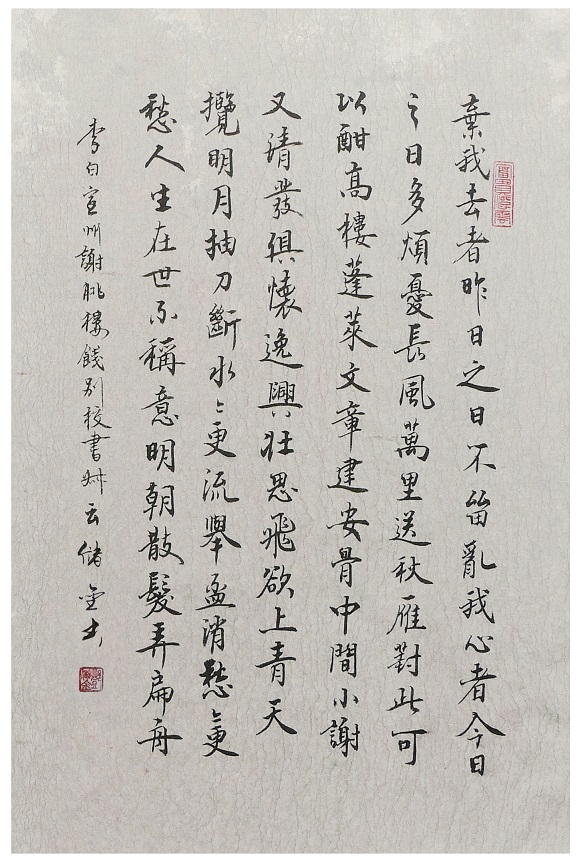 棄我去者昨日之日不留亂我心者今日
之日多煩憂長風萬里送秋雁對此可
以酣高樓蓬萊文章建安骨中間小謝
又清發俱懷逸興壯思飛欲上青天
攬明月抽刀斷水々更流舉盃消愁々更
愁人生在世不稱意明朝散髮弄扁舟
李白宣州謝朓樓餞別校書叔云儲金書